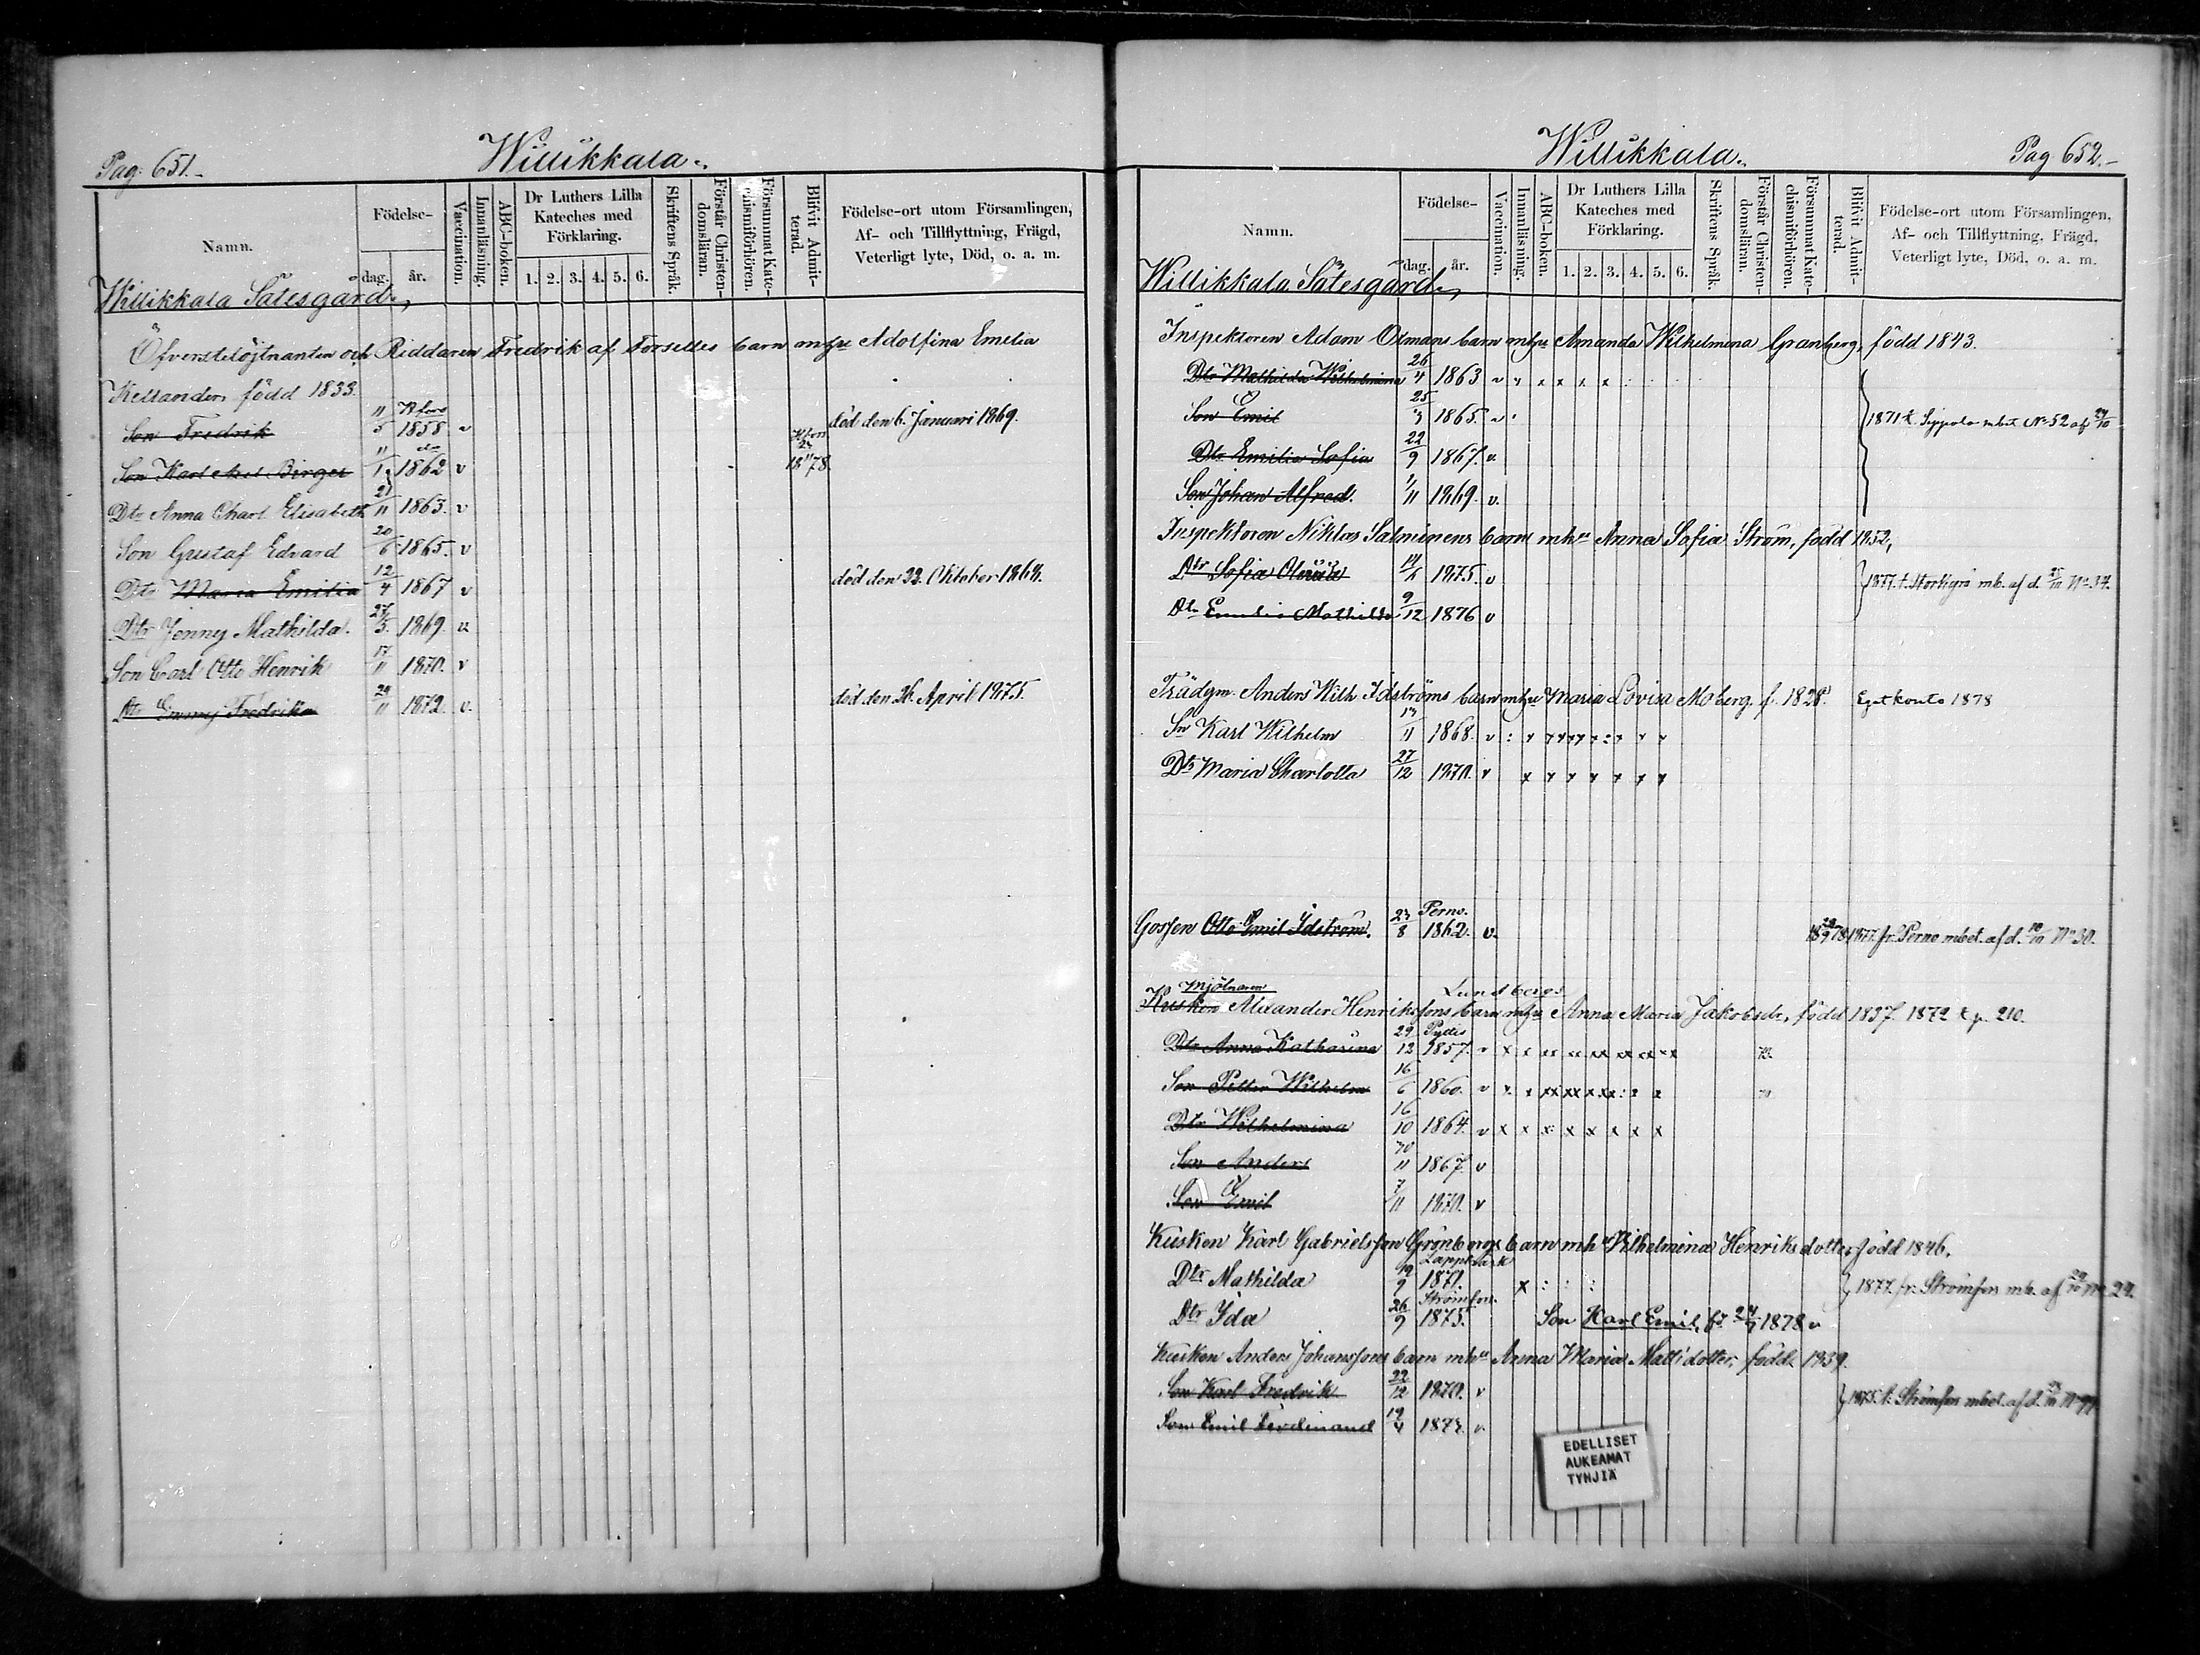 Pag: 651.-
Willikkala.
Namn.
Födelse-
dag.
år.
Vaccination.
Innanläsning.
ABC-boken.
Dr Luthers Lilla
Kateches med
Förklaring.
1. 2. 3. 4. 5. 6.
Skriftens Språk.
Förstår Christen-
domsläran.
Försummat Kate-
chismiförhören.
Blifvit Admit-
terad.
Födelse-ort utom Församlingen,
Af- och Tillflyttning, Frägd,
Veterligt lyte, Död, o. a. m.
Willikkala Sätesgård.
Öfverstelöjtnanten och Riddaren Fredrik af Forselles barn m hu Adolfina Emelia
Kellander född 1833.
Son Fredrik 11/5 1858 v död den 6. Januari 1869.
Son Karl Axel Birger 1862 v 1878.
Dtr Anna Charl. Elisabeth 21/11 1863. v
Son Gustaf Edvard 20/6 1865. v
Dtr Maria Emilia 12/4 1867 v död den 22. Oktober 1868.
Dtr Jenny Mathilda. 27/3. 1869. v
Son Carl Otto Henrik 17/11 1870. v
Dtr Emmy Fredrika 29/11 1872. v. död den 26. April 1875.
Willikkala.
Pag 652.-
Namn.
Födelse-
dag.
år.
Vaccination.
Innanläsning.
ABC-boken.
Dr Luthers Lilla
Kateches med
Förklaring.
1. 2. 3. 4. 5. 6.
Skriftens Språk.
Förstår Christen-
domsläran.
Försummat Kate-
chismiförhören.
Blifvit Admit-
terad.
Födelse-ort utom Församlingen,
Af- och Tillflyttning, Frägd,
Veterligt lyte, Död, o. a. m.
Willikkala Sätesgård.
Inspektoren Adam Ormans barn m hu Amanda Wilhelmina Granberg, född 1843.
Dtr Mathilda Wilhelmina 26/4 1863 v
Son Emil 25/3 1865. v 1871 t. Sippola mbet No 52 af 24/10
Dtr Emilia Sofia 22/9 1867. v
Son Johan Alfred. 1/11 1869. v.
Inspektoren Niklas Salminens barn m hu Anna Sofia Ström, född 1852,
Dtr Sofia 1875. v 1877. t. Storkyro mb. af d. No 37.
Dtr Emilia Mathilda 9/12 1876 v
Trädgm. Anders Wilh Idströms barn m hu Maria Lovisa Moberg f. 1828. Eget konto 1878
Sn Karl Wilhelm 1868. v
Dtr Maria Charlotta 27/12 1870. v
Gossen Otto Emil Idström. 23/8 Perno. 1862. v. 1878 1877. fr. Perno mbet. af d. No 30.
Mjölnaren Lundbergs
Kusken Alexander Henrikssons barn m hu Anna Maria Jakobsdr, född 1837. 1872 t p. 210.
Dtr Anna Katharina 29/12 Pyttis 1857. v
Son Petter Wilhelm 16/6 1860. v
Dtr Wilhelmina 16/10 1864. v
Son Anders 30/11 1867. v
Son Emil 7/11 1870. v
Kusken Karl Gabrielsson Grönbergs barn m hu Wilhelmina Henriksdotter född 1846.
Dtr Mathilda Lappträsk 1871. 1877. fr. Strömfors mb. af No 29.
Dtr Ida 26/9 Strömfors. 1875. Son Karl Emil, f. 1878 v
Kusken Anders Johanssons barn m hu Anna Maria Mattsdotter, född 1839.
Son Karl Fredrik 22/12 1870. v 1875. t. Strömfors mbet. af d.
Son Emil Ferdinand 19/4 v
EDELLISET
AUKEAMAT
TYHJIÄ